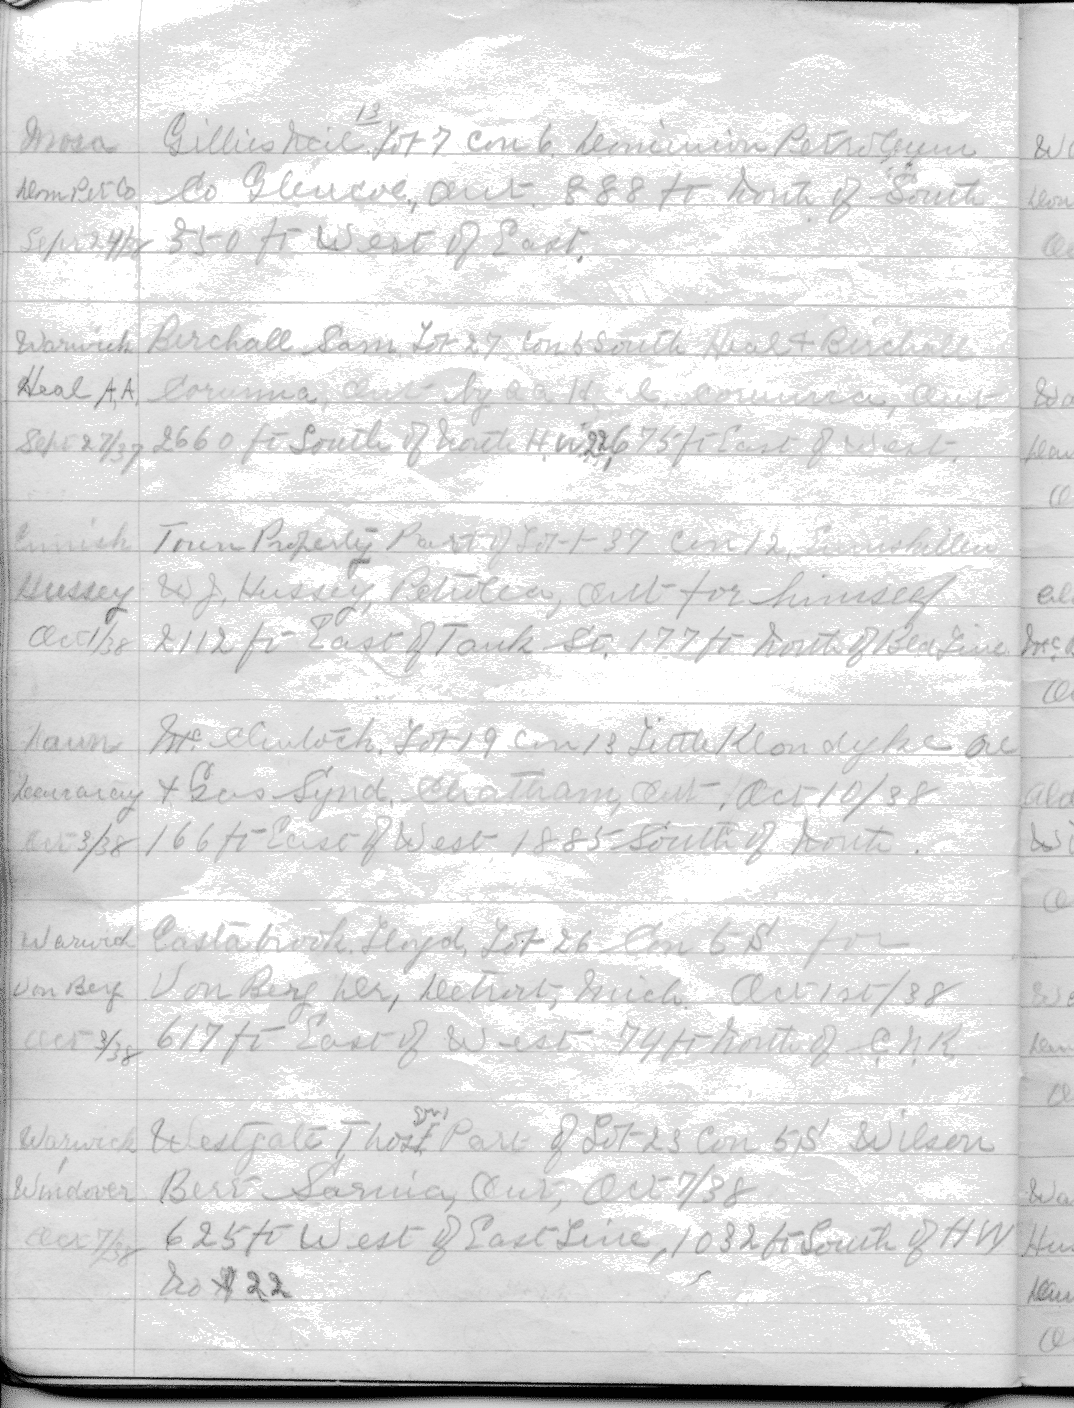 13
Mosa Gillies Neil Lot 7 Con 6. Dominion Petroleum
Dom Pet Co. Co Glencoe, Ont. 888 ft North of South
Sept 29/38 350 ft West of East.
Warwick Birchall Sam Lot 27 Con 6 South Heal + Birchall
Heal A,A, Corunna, Ont by Corunna, Ont
Sept 27/37 2660 ft South of North H.W. 22, 675 ft East of West.
Ennisk Town Property Part of Lot 37 Con 12, Enniskillen
Hussey W J, Hussey, Petrolea, Ont for himself
Oct 1/38 2112 ft East of Tank St. 177 ft North of Line
Dawn Mc Lot 19 Con 13 Little Klondyke Oil
+ Gas Synd. Chatham, Ont, Oct 10/38
Oct 3/38 166 ft East of West 1885 South of North.
Warwick Eastabrook Lloyd, Lot 26 Con 5 S for
Von Berg Von Berg Detroit, Mich. Oct 1st/38
Oct 3/38 617 ft East of West 74 ft North of C.N.R
Warwick Westgate Thos Part of Lot 23 Con 5 S Wilson
Windover Bert Sarnia, Ont, Oct 7/38
Oct 7/38 625 ft West of East Line, 1032 ft South of HW
No 22